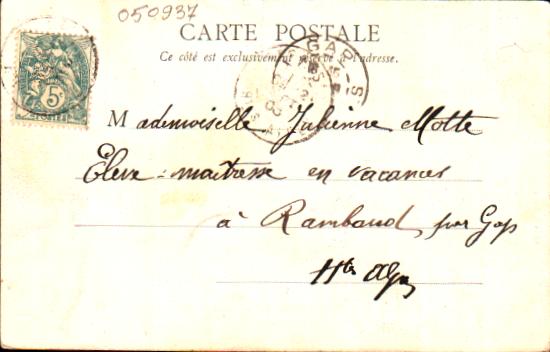 050937
CARTE POSTALE
Ce côté est exclusivement réservé à l'adresse.
5c
GAP
Mademoiselle Julienne Motte
Élève-maîtresse en vacances
à Rambaud, par Gap
Htes Alpes